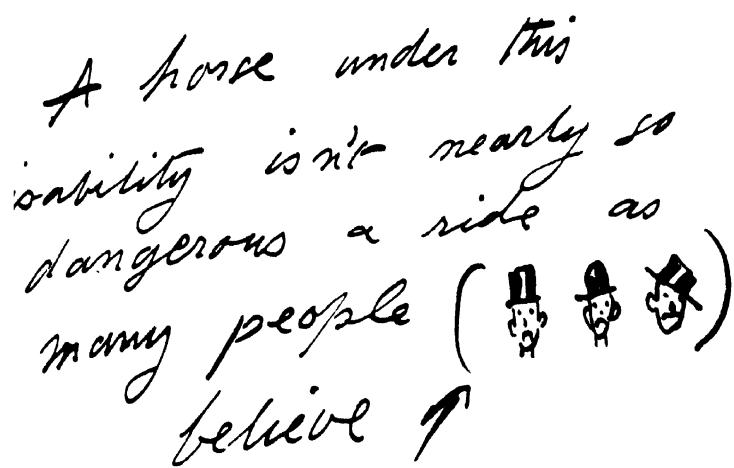 A horse under this
isability isn't nearly so
dangerous a ride as
many people ( )
believe